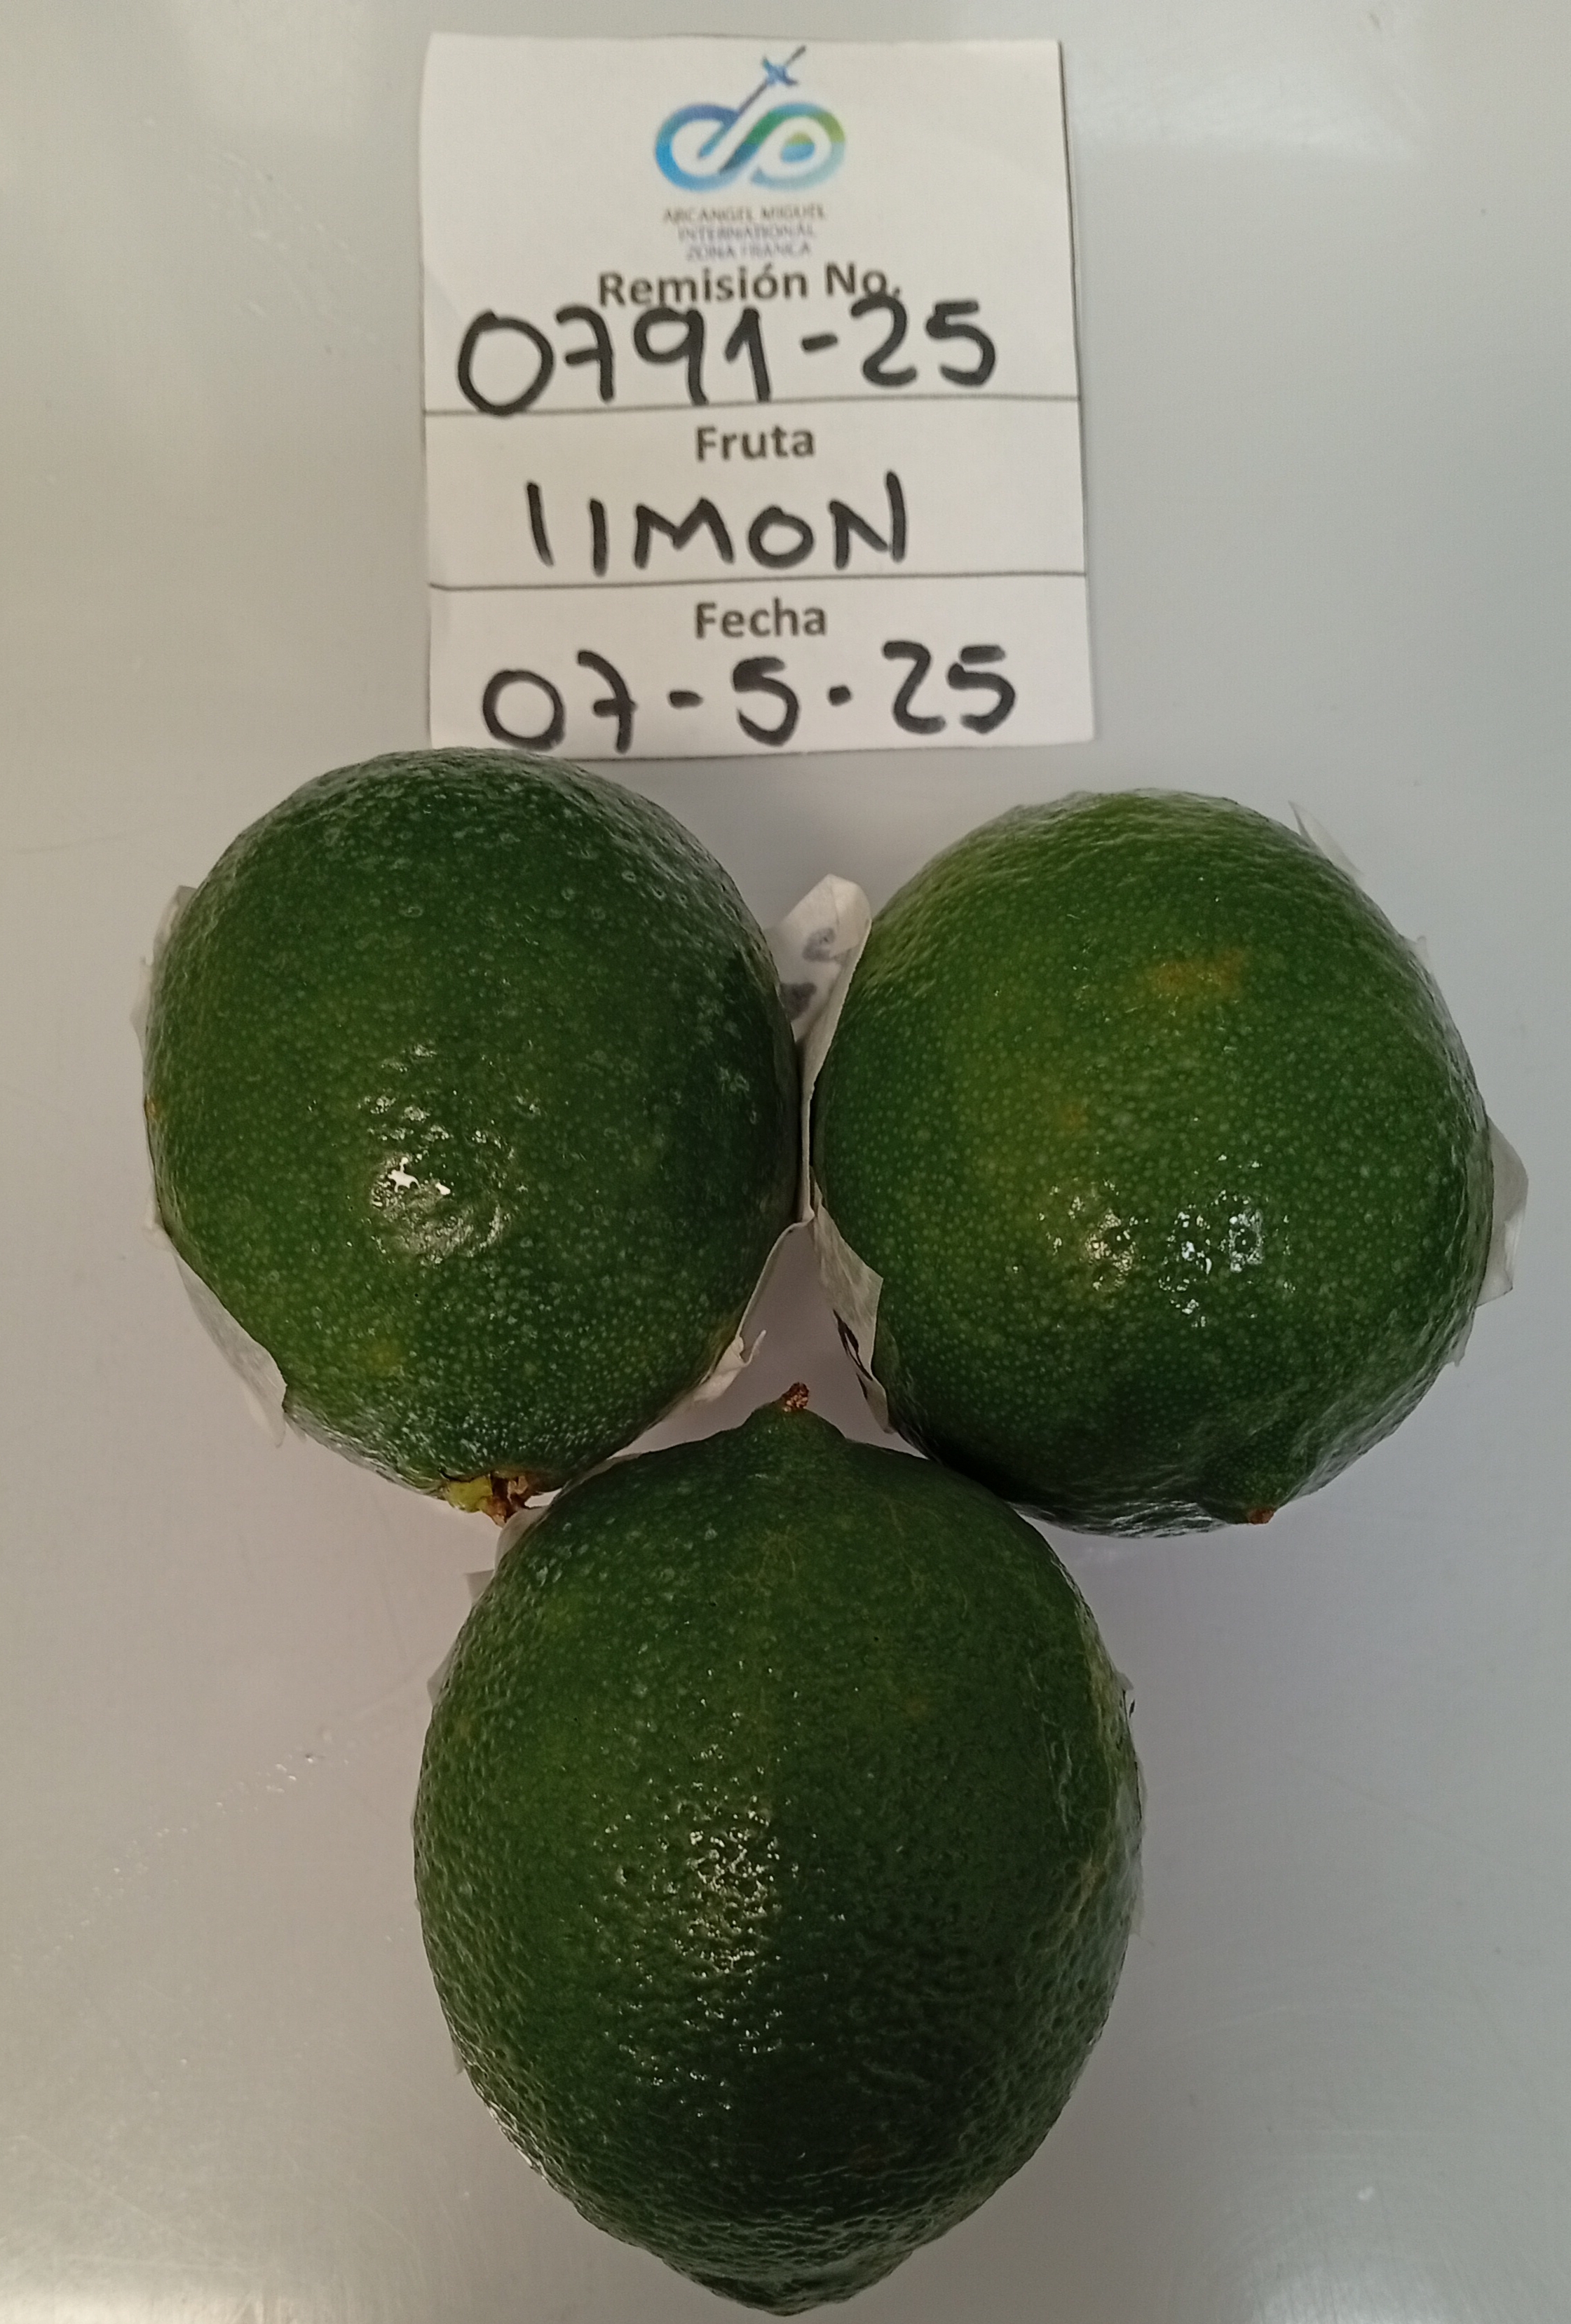 ARCANGEL MIGUEL
INTERNATIONAL
ZONA FRANCA
Remisión No.
0791-25
Fruta
lIMON
Fecha
07-5-25